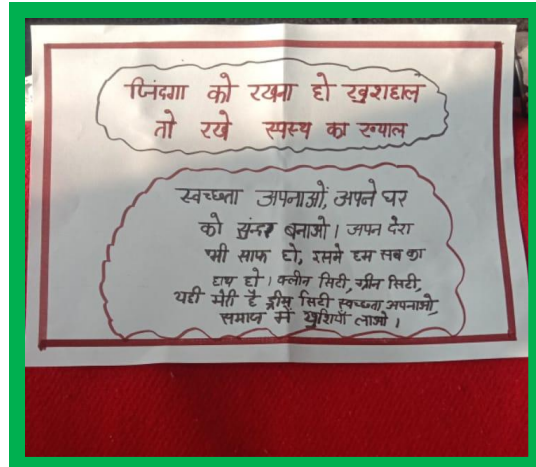 जिंदगी को रखना हो खुशहाल
तो रखे स्वस्थ का ख्याल
स्वच्छता अपनाओं, अपने घर
को सुंदर बनाओ। अपन देश
भी साफ हो, इसमे हम सब का
हाथ हो। क्लीन सिटी, ग्रीन सिटी,
यही मेरी है ड्रीम सिटी स्वच्छता अपनाओ,
समाज में खुशियाँ लाओ।